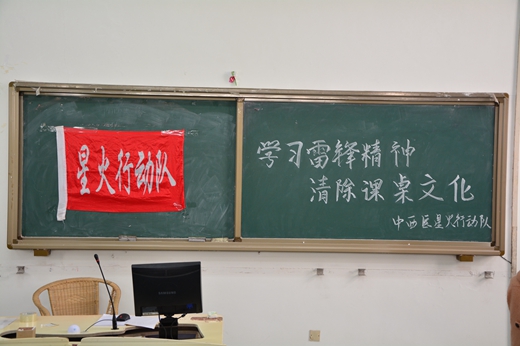 星火行动队
学习雷锋精神
清除课桌文化
中西医星火行动队